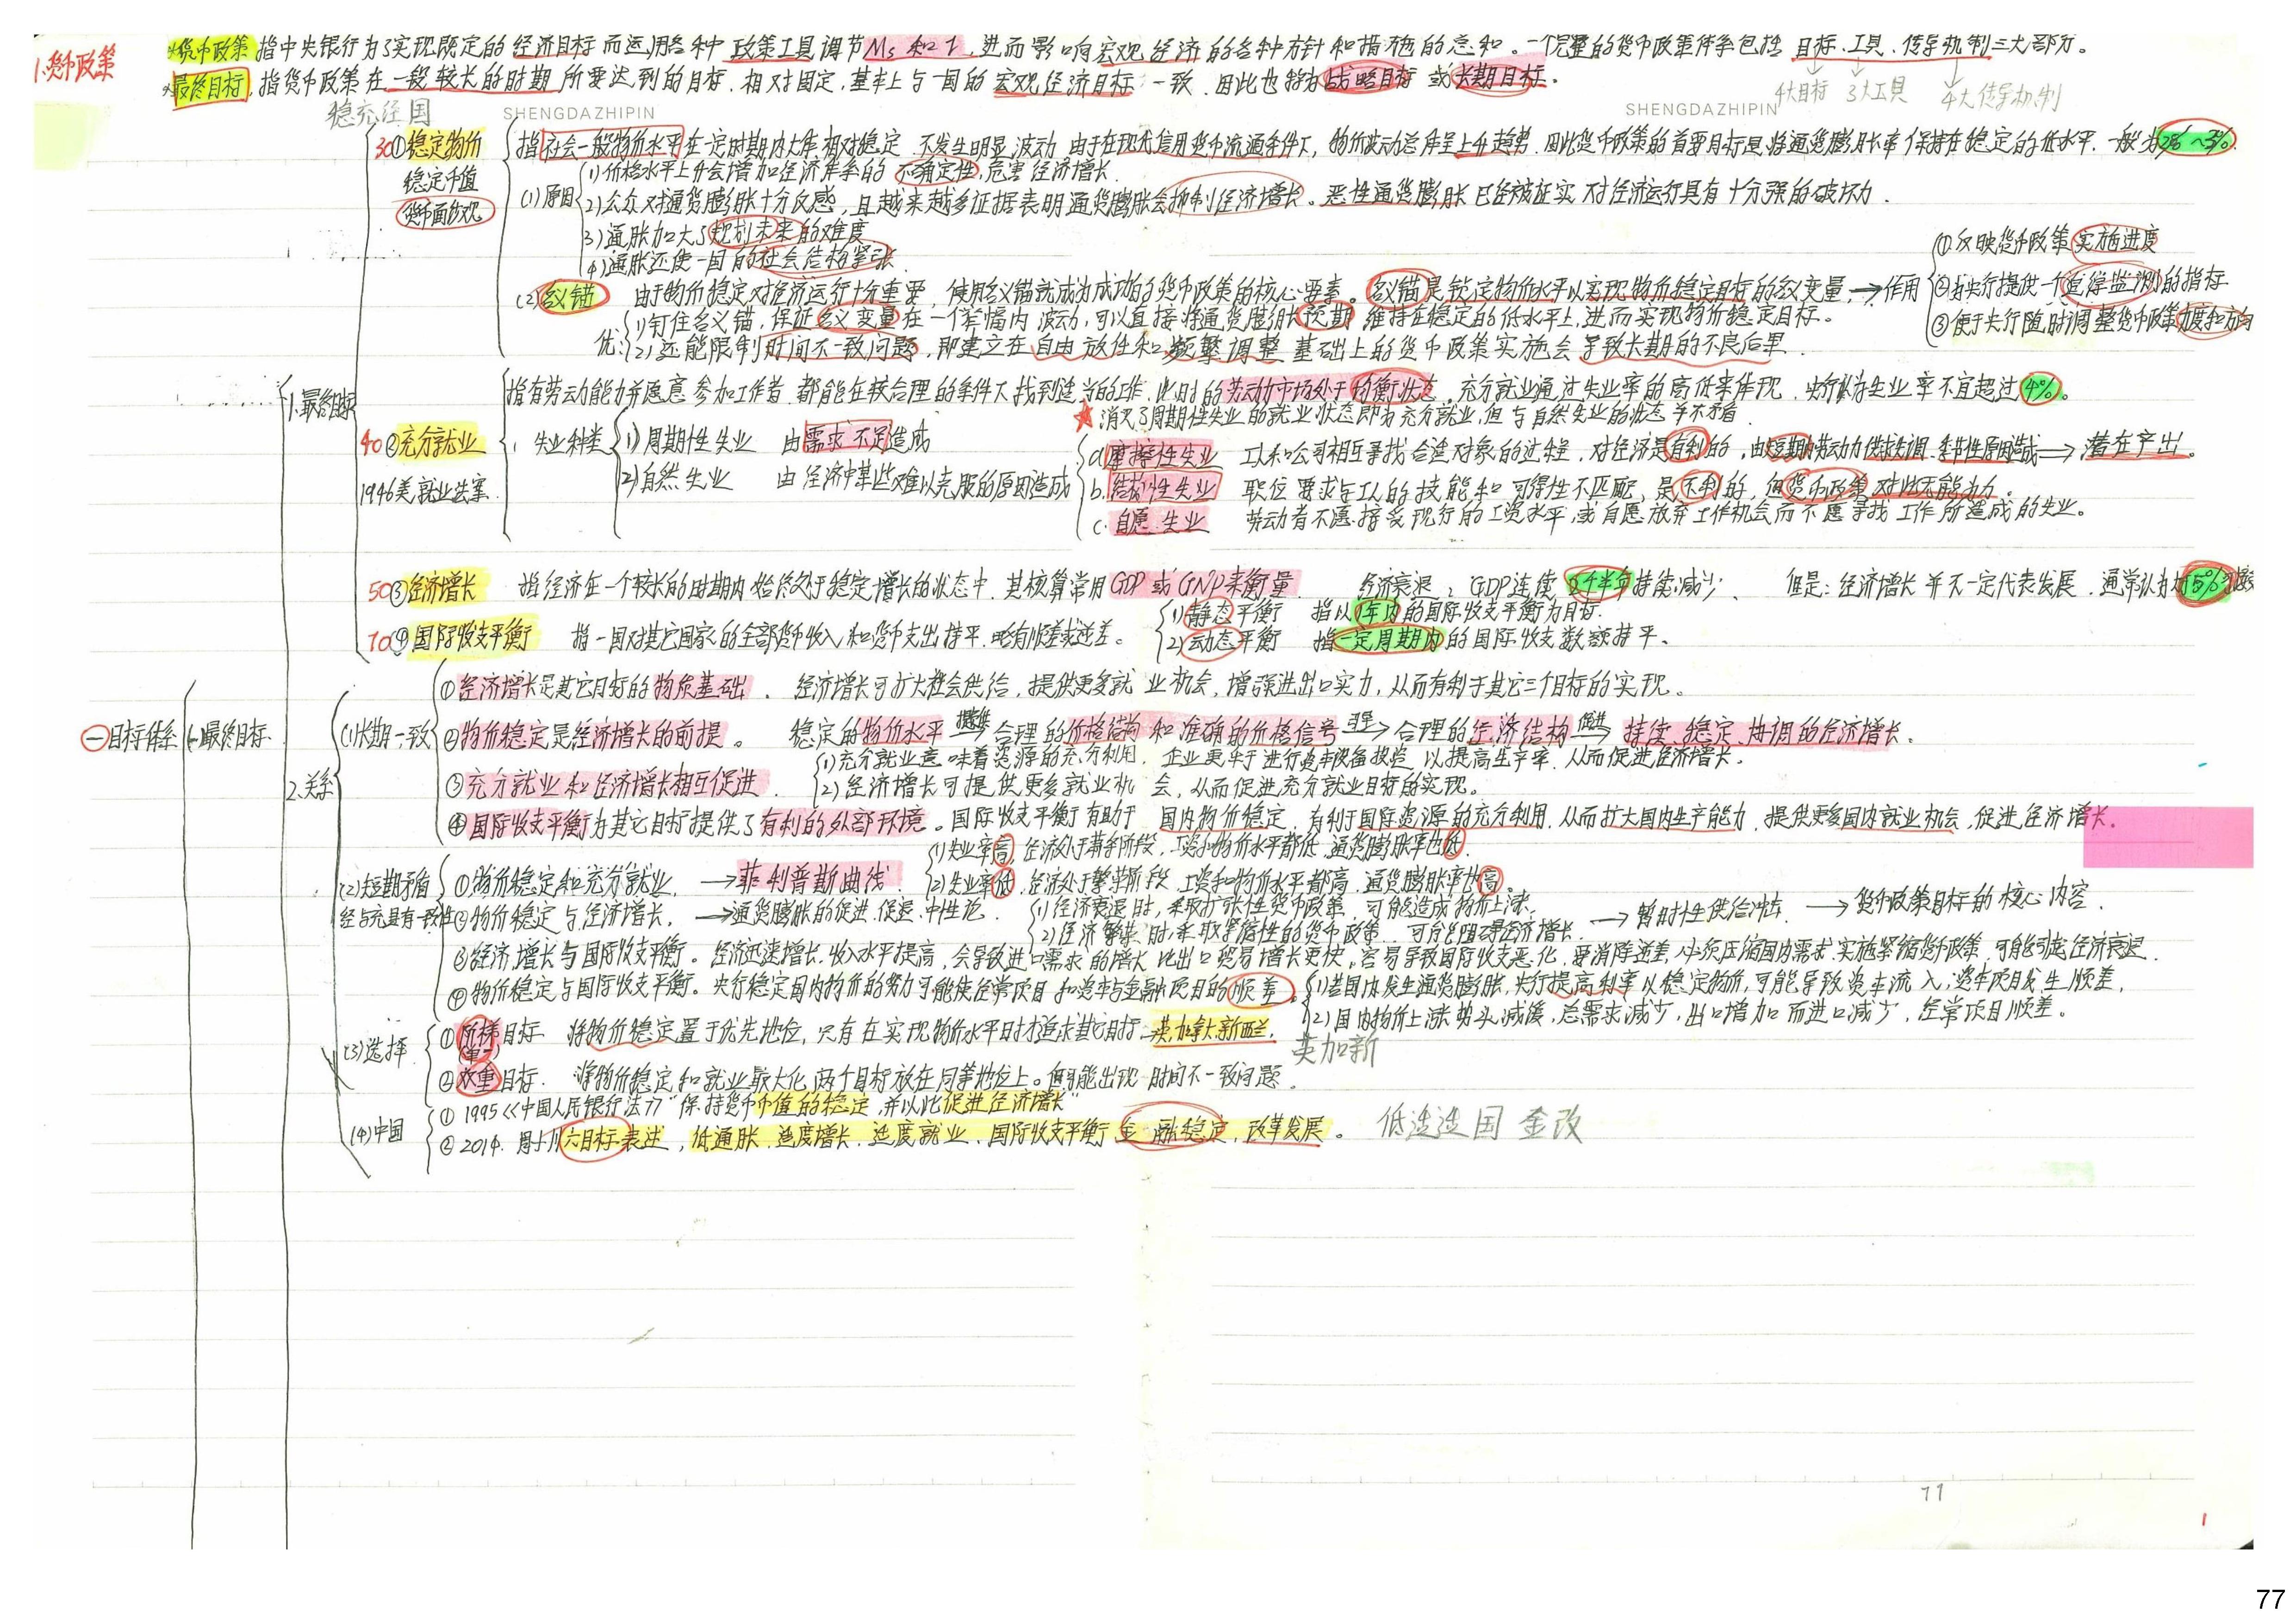 1.货币政策
*货币政策 指中央银行为了实现既定的经济目标而运用各种政策工具调节Ms和r,进而影响宏观经济的各种方针和措施的总和。一个完整的货币政策体系包括目标、工具、传导机制三大部分。
*最终目标,指货币政策在一段较长的时期所要达到的目标,相对固定,基本上与一国的宏观经济目标一致,因此也称为战略目标或长期目标。
4大目标 3大工具 4大传导机制
稳充经国
SHENGDAZHIPIN
SHENGDAZHIPIN
㊀目标体系
(一)最终目标
1.最终目标
30①稳定物价
稳定币值
货币面纱观
指社会一般物价水平在一定时期内大体相对稳定,不发生明显波动,由于在现代信用货币流通条件下,物价波动总体呈上升趋势,因此货币政策的首要目标是将通货膨胀率保持在稳定的低水平,一般为2%~3%.
(1)原因
1)价格水平上升会增加经济体系的不确定性,危害经济增长.
2)公众对通货膨胀十分反感,且越来越多证据表明通货膨胀会抑制经济增长。恶性通货膨胀已经被证实对经济运行具有十分强的破坏力.
3)通胀加大了规划未来的难度
4)通胀还使一国的社会结构紧张.
(2)名义锚 由于物价稳定对经济运行十分重要,使用名义锚就成为成功的货币政策的核心要素。名义锚是锁定物价水平以实现物价稳定目标的名义变量,→作用
①反映货币政策实施进度
②为央行提供一个追踪监测的指标
③便于央行随时调整货币政策力度和方向
优:
1)钉住名义锚,保证名义变量在一个窄幅内波动,可以直接将通货膨胀预期维持在稳定的低水平上,进而实现物价稳定目标。
2)还能限制时间不一致问题,即建立在自由放任和频繁调整基础上的货币政策实施会导致长期的不良后果.
40②充分就业
1946美就业法案.
指有劳动能力并愿意参加工作者,都能在较合理的条件下找到适当的工作,此时的劳动力市场处于均衡状态,充分就业通过失业率的高低来体现,央行认为失业率不宜超过4%。
★消灭了周期性失业的就业状态即为充分就业,但与自然失业的状态并不矛盾.
失业种类
1)周期性失业 由需求不足造成
2)自然失业 由经济中某些难以克服的原因造成
a.摩擦性失业 工人和公司相互寻找合适对象的过程,对经济是有利的,由短期内劳动力供求失调、季节性原因造成⇒潜在产出。
b.结构性失业 职位要求与工人的技能和可得性不匹配,是不利的,但货币政策对此无能为力。
c.自愿失业 劳动者不愿接受现行的工资水平,或自愿放弃工作机会而不愿寻找工作所造成的失业。
50③经济增长 指经济在一个较长的时期内始终处于稳定增长的状态中,其核算常用GDP或GNP来衡量 经济衰退:GDP连续2个半年持续减少、 但是:经济增长并不一定代表发展,通常认为
70④国际收支平衡 指一国对其它国家的全部货币收入和货币支出持平,略有顺差或逆差。
1)静态平衡 指以1年内的国际收支平衡为目标.
2)动态平衡 指一定周期内的国际收支数额持平、
2.关系
(1)长期一致
①经济增长是其它目标的物质基础. 经济增长可扩大社会供给,提供更多就业机会,增强进出口实力,从而有利于其它三个目标的实现。
②物价稳定是经济增长的前提。 稳定的物价水平 提供→ 合理的价格结构和准确的价格信号 引导→ 合理的经济结构 促进→ 持续、稳定、协调的经济增长.
③充分就业和经济增长相互促进.
1)充分就业意味着资源的充分利用,企业更乐于进行资本设备投资以提高生产率,从而促进经济增长。
2)经济增长可提供更多就业机会,从而促进充分就业目标的实现。
④国际收支平衡为其它目标提供了有利的外部环境。国际收支平衡有助于国内物价稳定,有利于国际资源的充分利用,从而扩大国内生产能力,提供更多国内就业机会,促进经济增长.
(2)短期矛盾
经与充具有一致性
①物价稳定和充分就业. →菲利普斯曲线.
1)失业率高,经济处于萧条阶段,工资和物价水平都低,通货膨胀率也低.
2)失业率低,经济处于繁荣阶段,工资和物价水平都高,通货膨胀率也高。
②物价稳定与经济增长. →通货膨胀的促进、促退、中性论.
1)经济衰退时,采取扩张性货币政策,可能造成物价上涨.
2)经济繁荣时,采取紧缩性的货币政策,可能阻碍经济增长. → 暂时性供给冲击. → 货币政策目标的核心内容.
③经济增长与国际收支平衡。经济迅速增长,收入水平提高,会导致进口需求的增长比出口贸易增长更快,容易导致国际收支恶化,要消除逆差,必须压缩国内需求,实施紧缩货币政策,可能引起经济衰退.
④物价稳定与国际收支平衡。央行稳定国内物价的努力可能使经常项目和资本与金融项目的顺差。
1)若国内发生通货膨胀,央行提高利率以稳定物价,可能导致资本流入,资本项目发生顺差,
2)国内物价上涨势头减缓,总需求减少,出口增加而进口减少,经常项目顺差。
(3)选择
①阶梯目标. 将物价稳定置于优先地位,只有在实现物价水平时才追求其它目标.—英,加拿大,新西兰.
(单一)
英加新
②双重目标. 将物价稳定和就业最大化两个目标放在同等地位上。但可能出现时间不一致问题.
(4)中国
① 1995《中国人民银行法》"保持货币币值的稳定,并以此促进经济增长"
② 2014.周小川六目标表述,低通胀、适度增长、适度就业、国际收支平衡、金融稳定、改革发展。
低适适国 金改
77